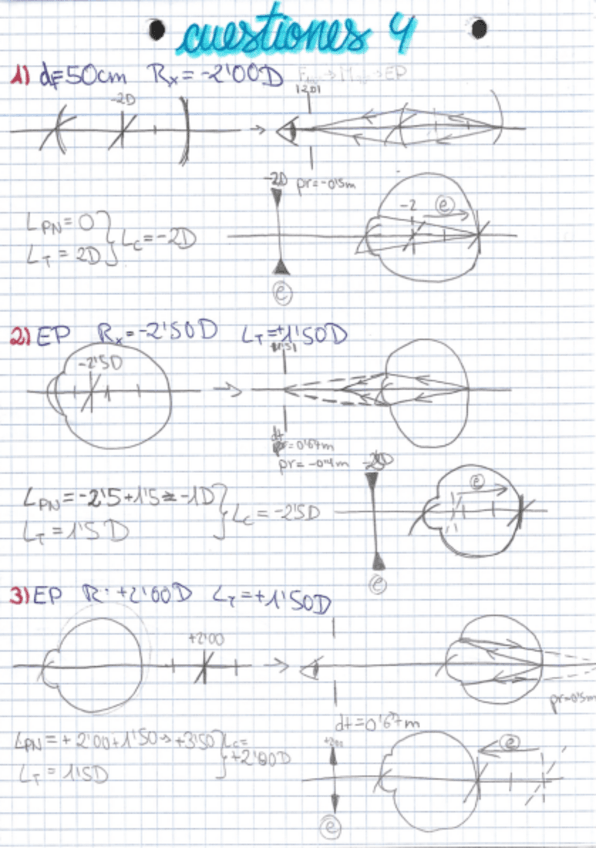 cuestiones 4
1) df=50cm Rx=-2'00D
-2D
pr=-0'5m
-2D
-2 e
LPN=0
LT=2D } Lc=-2D
e
2) EP Rx=-2'50D LT=+1'50D
-2'5D
dt=0'67m
pr=-0'4m
e
LPN=-2'5+1'5=-1D
LT=1'5D } Lc=-2'5D
e
3) EP R: +2'00D LT=+1'50D
+2'00
pr=0'5m
dt=0'67m
LPN=+2'00+1'50→+3'50
LT=1'5D } Lc=+2'00D
e
e